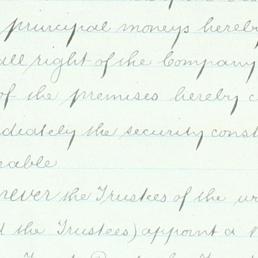 principal moneys hereby
all right of the Company
of the premises hereby c
diately the security const
eable
never the Trustees of the
d the Trustees) appoint a